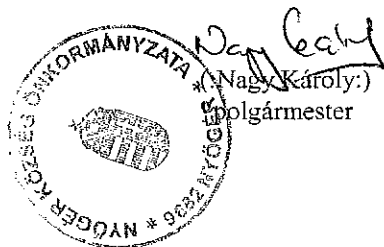 Nagy Károly
(:Nagy Károly:)
polgármester
NYŐGÉR KÖZSÉG ÖNKORMÁNYZATA * 9682 NYŐGÉR *